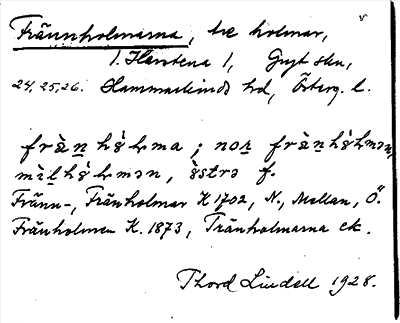 Frännholmarna, tre holmar,
1. Harstena 1, Gryt skn,
24, 25, 26. Hammarkinds hd, Österg. l.
fràn hò̤ḷma; noṟ fràn hò̤ḷmən,
mèl hò̤ḷmən, östrə f.
Fränn-, Fränholmar K 1702, N., Mellan, Ö.
Fränholmen K. 1873, Tränholmarna ek.
Thord Lindell 1928.